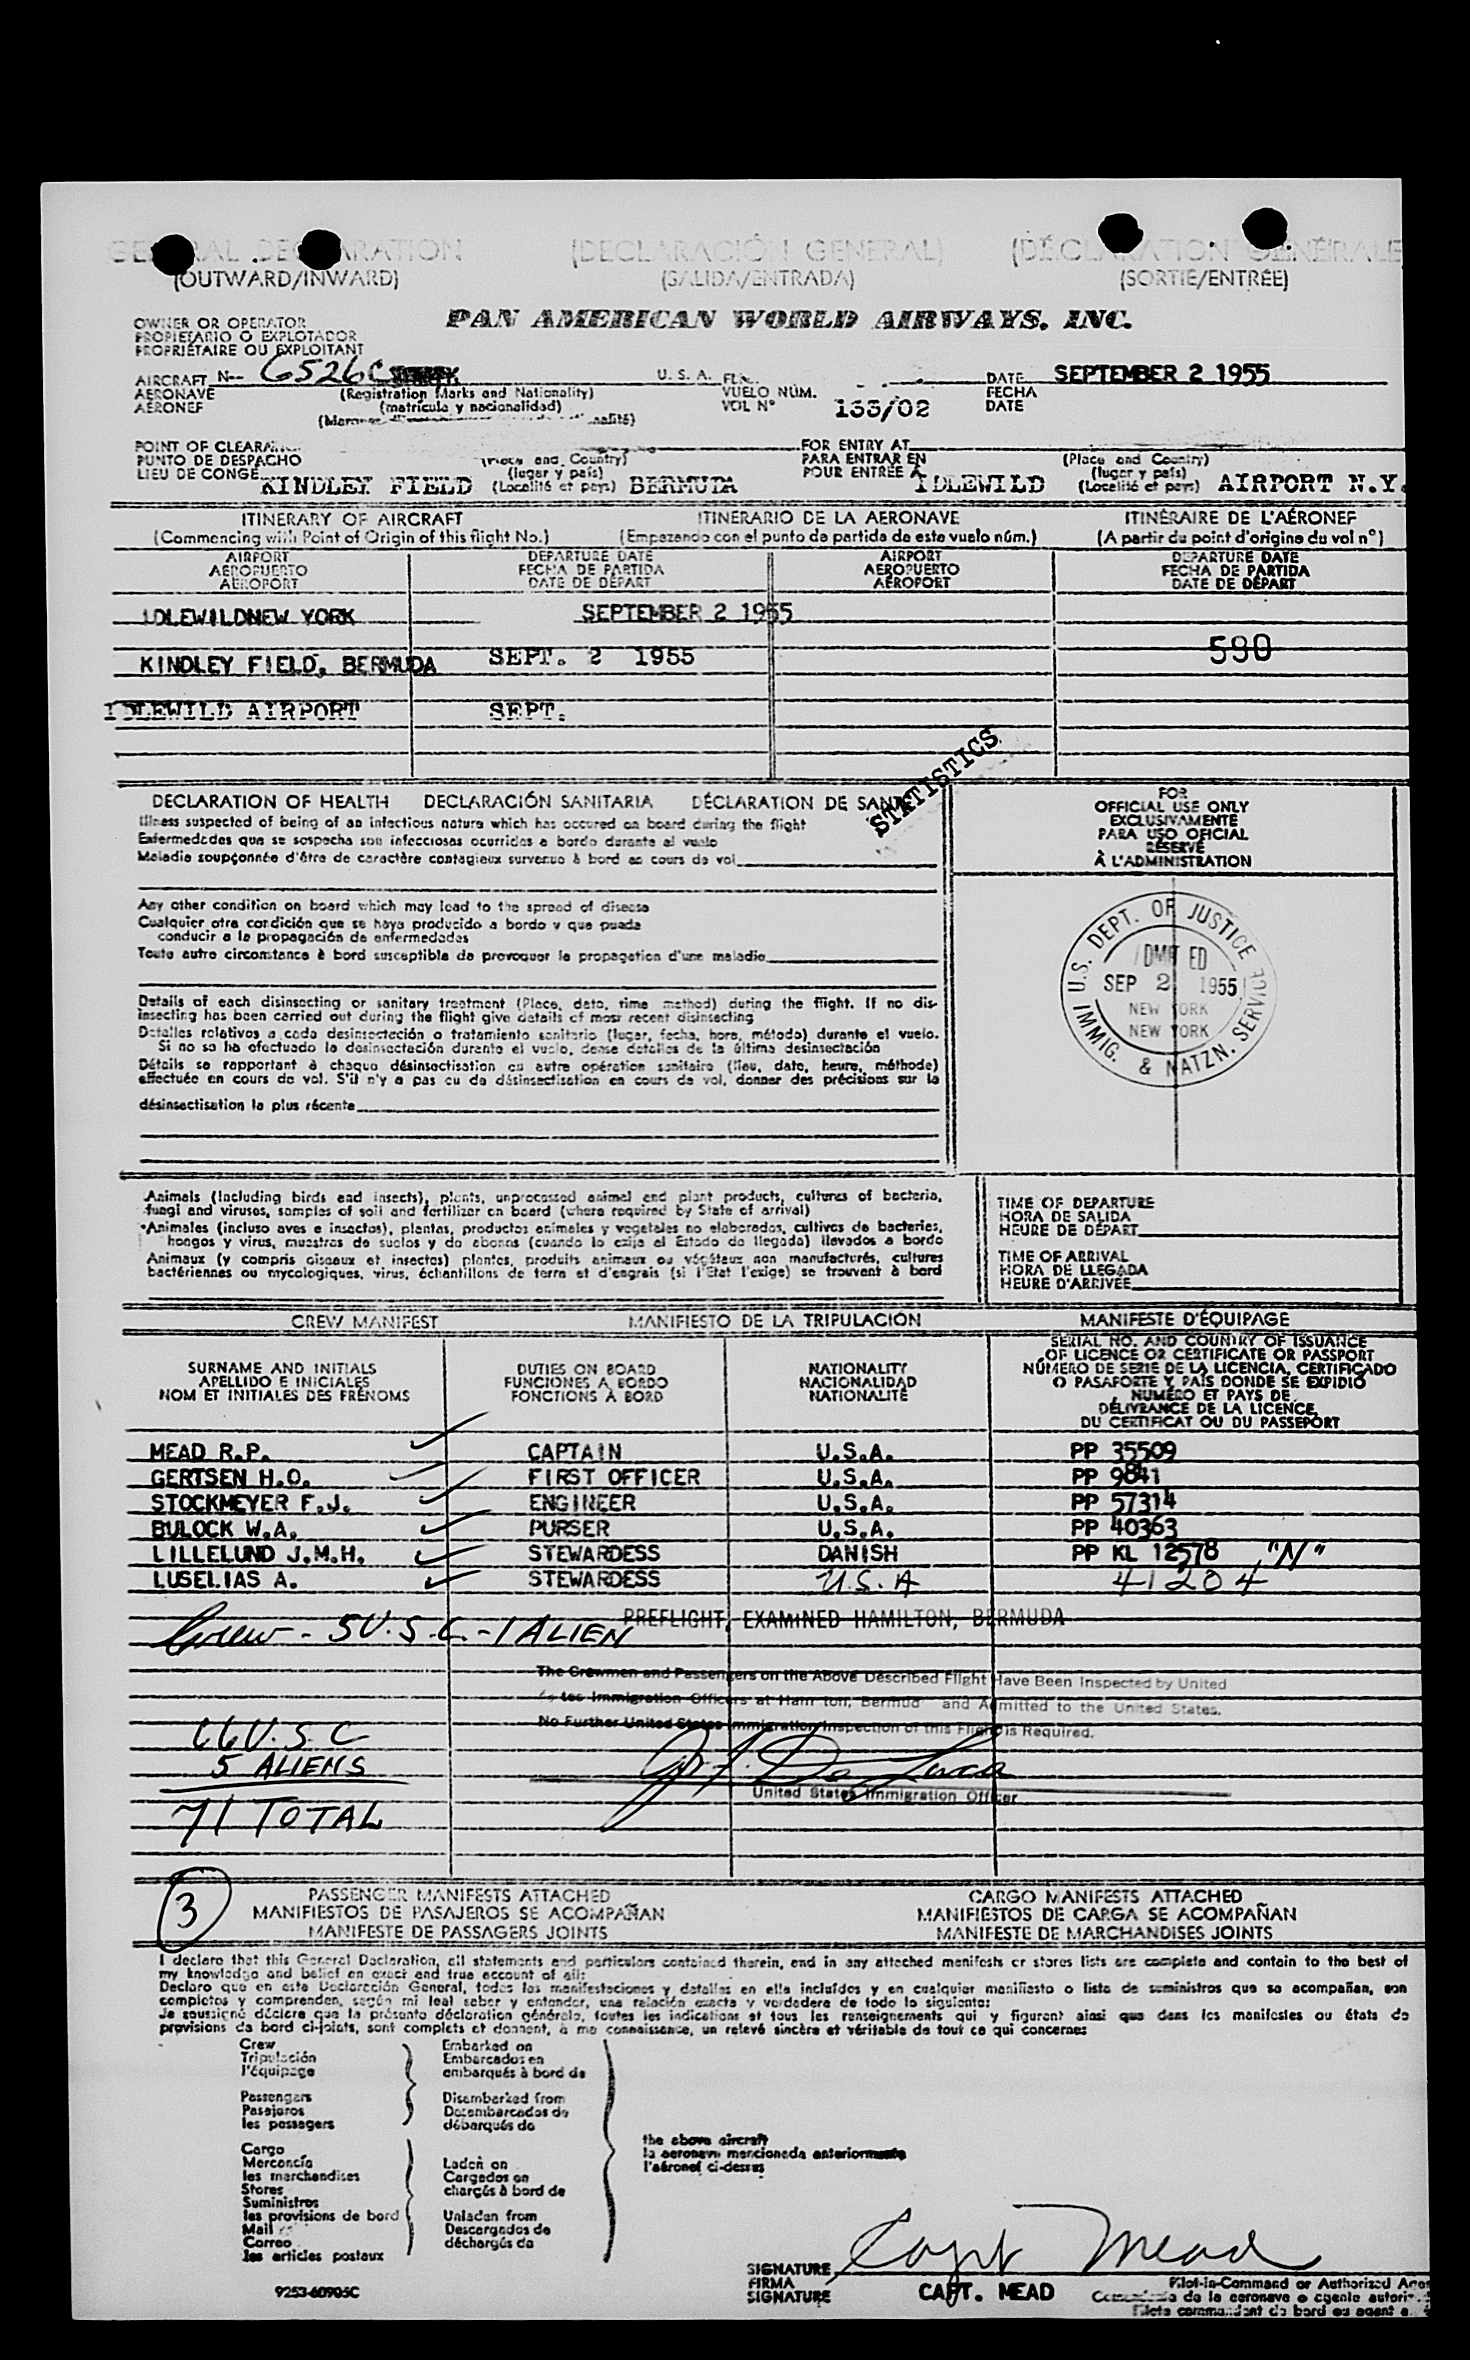 GENERAL DECLARATION (DECLARACIÓN GENERAL) (DÉCLARATION GÉNÉRALE
(OUTWARD/INWARD) (SALIDA/ENTRADA) (SORTIE/ENTRÉE)
OWNER OR OPERATOR PAN AMERICAN WORLD AIRWAYS, INC.
PROPIETARIO O EXPLOTADOR
PROPRIÉTAIRE OU EXPLOITANT
AIRCRAFT N-- 6526C U. S. A. DATE SEPTEMBER 2 1955
AERONAVE (Registration Marks and Nationality) VUELO NÚM. FECHA
AÉRONEF (matrícula y nacionalidad) VOL Nº 133/02 DATE
POINT OF CLEARANCE (Place and Country) FOR ENTRY AT (Place and Country)
PUNTO DE DESPACHO (lugar y país) PARA ENTRAR EN (lugar y país)
LIEU DE CONGÉ KINDLEY FIELD (Localité et pays) BERMUDA POUR ENTRÉE À IDLEWILD (Localité et pays) AIRPORT N.Y.
ITINERARY OF AIRCRAFT ITINERARIO DE LA AERONAVE ITINÉRAIRE DE L'AÉRONEF
(Commencing with Point of Origin of this flight No.) (Empezando con el punto de partida de este vuelo núm.) (A partir du point d'origine du vol nº)
AIRPORT DEPARTURE DATE AIRPORT DEPARTURE DATE
AEROPUERTO FECHA DE PARTIDA AEROPUERTO FECHA DE PARTIDA
AÉROPORT DATE DE DÉPART AÉROPORT DATE DE DÉPART
IDLEWILDNEW YORK SEPTEMBER 2 1955
KINDLEY FIELD, BERMUDA SEPT. 2 1955 590
IDLEWILD AIRPORT SEPT.
STATISTICS
DECLARATION OF HEALTH DECLARACIÓN SANITARIA DÉCLARATION DE SANTÉ
Illness suspected of being of an infectious nature which has occured on board during the flight
Enfermedades que se sospecha son infecciosas ocurridas a bordo durante el vuelo
Maladie soupçonnée d'être de caractère contagieux survenue à bord en cours de vol
Any other condition on board which may lead to the spread of disease
Cualquier otra condición que se haya producido a bordo y que pueda
conducir a la propagación de enfermedades
Toute autre circonstance à bord susceptible de provoquer la propagation d'une maladie
Details of each disinsecting or sanitary treatment (Place, date, time method) during the flight. If no dis-
insecting has been carried out during the flight give details of most recent disinsecting
Detalles relativos a cada desinsectación o tratamiento sanitario (lugar, fecha, hora, método) durante el vuelo.
Si no se ha efectuado la desinsectación durante el vuelo, dense detalles de la última desinsectación
Détails se rapportant à chaque désinsectisation ou autre opération sanitaire (lieu, date, heure, méthode)
effectuée en cours de vol. S'il n'y a pas eu de désinsectisation en cours de vol, donner des précisions sur la
désinsectisation la plus récente
FOR
OFFICIAL USE ONLY
EXCLUSIVAMENTE
PARA USO OFICIAL
RÉSERVÉ
À L'ADMINISTRATION
U.S. DEPT. OF JUSTICE
ADMITTED
SEP 2 1955
NEW YORK
NEW YORK
IMMIG. & NATZN. SERVICE
Animals (Including birds and insects), plants, unprocessed animal and plant products, cultures of bacteria,
fungi and viruses, samples of soil and fertilizer on board (where required by State of arrival)
Animales (incluso aves e insectos), plantas, productos animales y vegetales no elaborados, cultivos de bacterias,
hongos y virus, muestras de suelos y de abonos (cuando lo exija el Estado de llegada) llevados a bordo
Animaux (y compris oiseaux et insectes) plantes, produits animaux ou végétaux non manufacturés, cultures
bactériennes ou mycologiques, virus, échantillons de terre et d'engrais (si l'État l'exige) se trouvant à bord
TIME OF DEPARTURE
HORA DE SALIDA
HEURE DE DÉPART
TIME OF ARRIVAL
HORA DE LLEGADA
HEURE D'ARRIVÉE
CREW MANIFEST MANIFIESTO DE LA TRIPULACIÓN MANIFESTE D'ÉQUIPAGE
SURNAME AND INITIALS
APELLIDO E INICIALES
NOM ET INITIALES DES PRÉNOMS
DUTIES ON BOARD
FUNCIONES A BORDO
FONCTIONS À BORD
NATIONALITY
NACIONALIDAD
NATIONALITÉ
SERIAL NO. AND COUNTRY OF ISSUANCE
OF LICENCE OR CERTIFICATE OR PASSPORT
NÚMERO DE SERIE DE LA LICENCIA, CERTIFICADO
O PASAPORTE Y PAÍS DONDE SE EXPIDIÓ
NUMÉRO ET PAYS DE
DÉLIVRANCE DE LA LICENCE,
DU CERTIFICAT OU DU PASSEPORT
MEAD R.P. CAPTAIN U.S.A. PP 35509
GERTSEN H.O. FIRST OFFICER U.S.A. PP 9841
STOCKMEYER F.J. ENGINEER U.S.A. PP 57314
BULOCK W.A. PURSER U.S.A. PP 40363
LILLELUND J.M.H. STEWARDESS DANISH PP KL 12578 "N"
LUSELIAS A. STEWARDESS U.S.A 41204
PREFLIGHT EXAMINED HAMILTON, BERMUDA
Crew - 5 U.S.C. - 1 ALIEN
The Crewmen and Passengers on the Above Described Flight Have Been Inspected by United
States Immigration Officers at Hamilton, Bermuda and Admitted to the United States.
No Further United States Immigration Inspection of this Flight is Required.
66 U.S.C
5 ALIENS
71 TOTAL
United States Immigration Officer
3
PASSENGER MANIFESTS ATTACHED CARGO MANIFESTS ATTACHED
MANIFIESTOS DE PASAJEROS SE ACOMPAÑAN MANIFIESTOS DE CARGA SE ACOMPAÑAN
MANIFESTE DE PASSAGERS JOINTS MANIFESTE DE MARCHANDISES JOINTS
I declare that this General Declaration, all statements and particulars contained therein, and in any attached manifests or stores lists are complete and contain to the best of
my knowledge and belief an exact and true account of all:
Declaro que en esta Declaración General, todas las manifestaciones y detalles en ella incluídos y en cualquier manifiesto o lista de suministros que se acompañan, son
completos y comprenden, según mi leal saber y entender, una relación exacta y verdadera de todo lo siguiente:
Je soussigné déclare que la présente déclaration générale, toutes les indications et tous les renseignements qui y figurent ainsi que dans les manifestes ou états de
provisions de bord ci-joints, sont complets et donnent, à ma connaissance, un relevé sincère et véritable de tout ce qui concerne:
Crew Embarked on
Tripulación Embarcados en
l'équipage embarqués à bord de
Passengers Disembarked from
Pasajeros Desembarcados de
les passagers débarqués de
the above aircraft
la aeronave mencionada anteriormente
l'aéronef ci-dessus
Cargo
Mercancía Laden on
les marchandises Cargados en
Stores chargés à bord de
Suministros
les provisions de bord Unladen from
Mail Descargados de
Correo déchargés de
les articles postaux
Capt Mead
SIGNATURE
FIRMA
SIGNATURE
CAPT. MEAD
Pilot-in-Command or Authorized Agen
Comandante de la aeronave o agente autori
Pilote commandant de bord ou agent a
9253-60905C